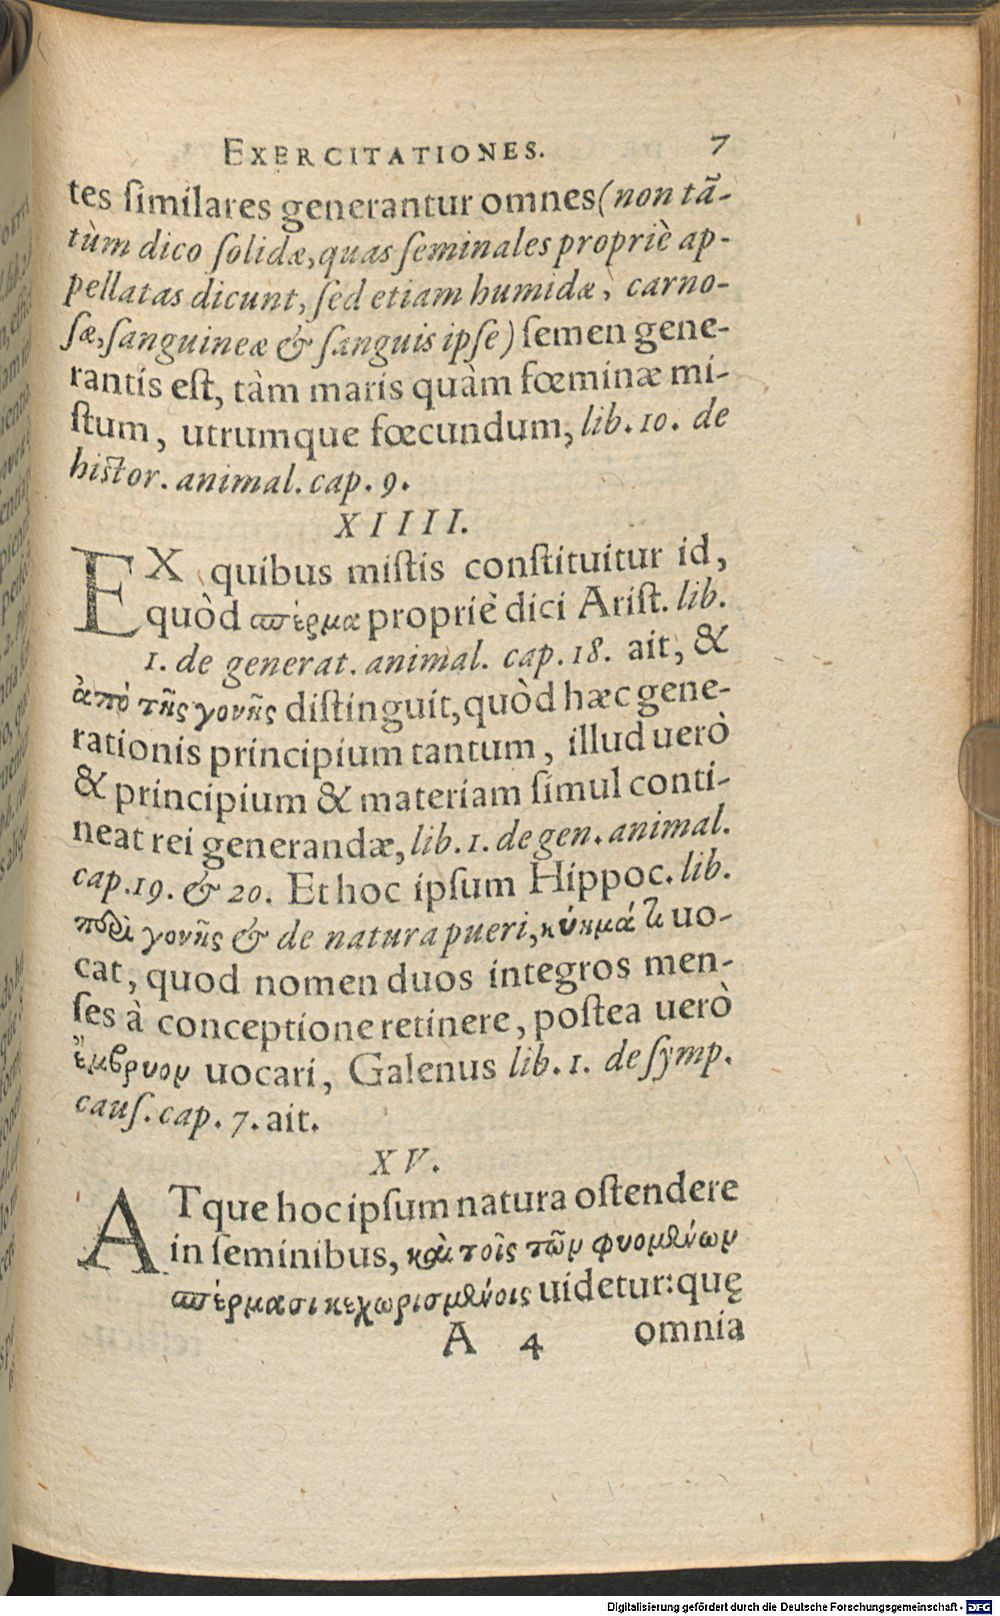 EXERCITATIONES. 7
tes ſimilares generantur omnes (non tā-
tùm dico ſolidæ, quas ſeminales propriè ap-
pellatas dicunt, ſed etiam humidæ, carno-
ſæ, ſanguineæ & ſanguis ipſe) ſemen gene-
rantis eſt, tàm maris quàm fœminæ mi-
ſtum, utrumque fœcundum, lib. 10. de
histor. animal. cap. 9.
XIIII.
EX quibus miſtis conſtituitur id,
quòd ϖέρμα propriè dici Ariſt. lib.
1. de generat. animal. cap. 18. ait, &
ἀπὸ τῆς γονῆς diſtinguit, quòd hæc gene-
rationis principium tantum, illud uerò
& principium & materiam ſimul conti-
neat rei generandæ, lib. 1. de gen. animal.
cap. 19. & 20. Et hoc ipſum Hippoc. lib.
περὶ γονῆς & de natura pueri, κύημά τι uo-
cat, quod nomen duos integros men-
ſes à conceptione retinere, poſtea uerò
ἔμβρυον uocari, Galenus lib. 1. de ſymp.
cauſ. cap. 7. ait.
XV.
ATque hoc ipſum natura oſtendere
in ſeminibus, καὶ τοῖς τῶν φυομένων
σπέρμασι κεχωρισμένοις uidetur: quę
A 4 omnia
Digitalisierung gefördert durch die Deutsche Forschungsgemeinschaft - DFG